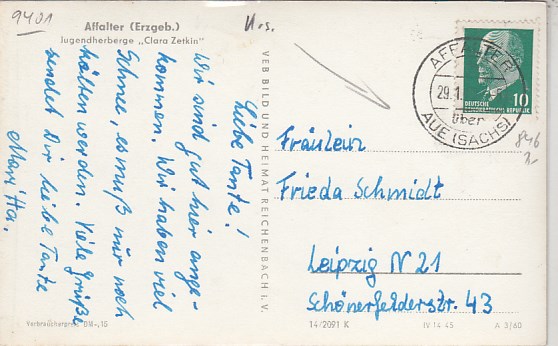 9401
Affalter (Erzgeb.)
Jugendherberge „Clara Zetkin"
Liebe Tante!
Wir sind gut hier ange-
kommen. Wir haben viel
Schnee, es muß nur noch
kälter werden. Viele Grüße
sendet Dir liebe Tante
Verbraucherpreis DM -,15
VEB BILD UND HEIMAT REICHENBACH I. V.
AFFALTER
29.1.
über
AUE (SACHS)
DEUTSCHE
DEMOKRATISCHE REPUBLIK
10
Fräulein
Frieda Schmidt
Leipzig N 21
Schönerfelderstr. 43
14/2091 K
IV 14 45
A 3/60